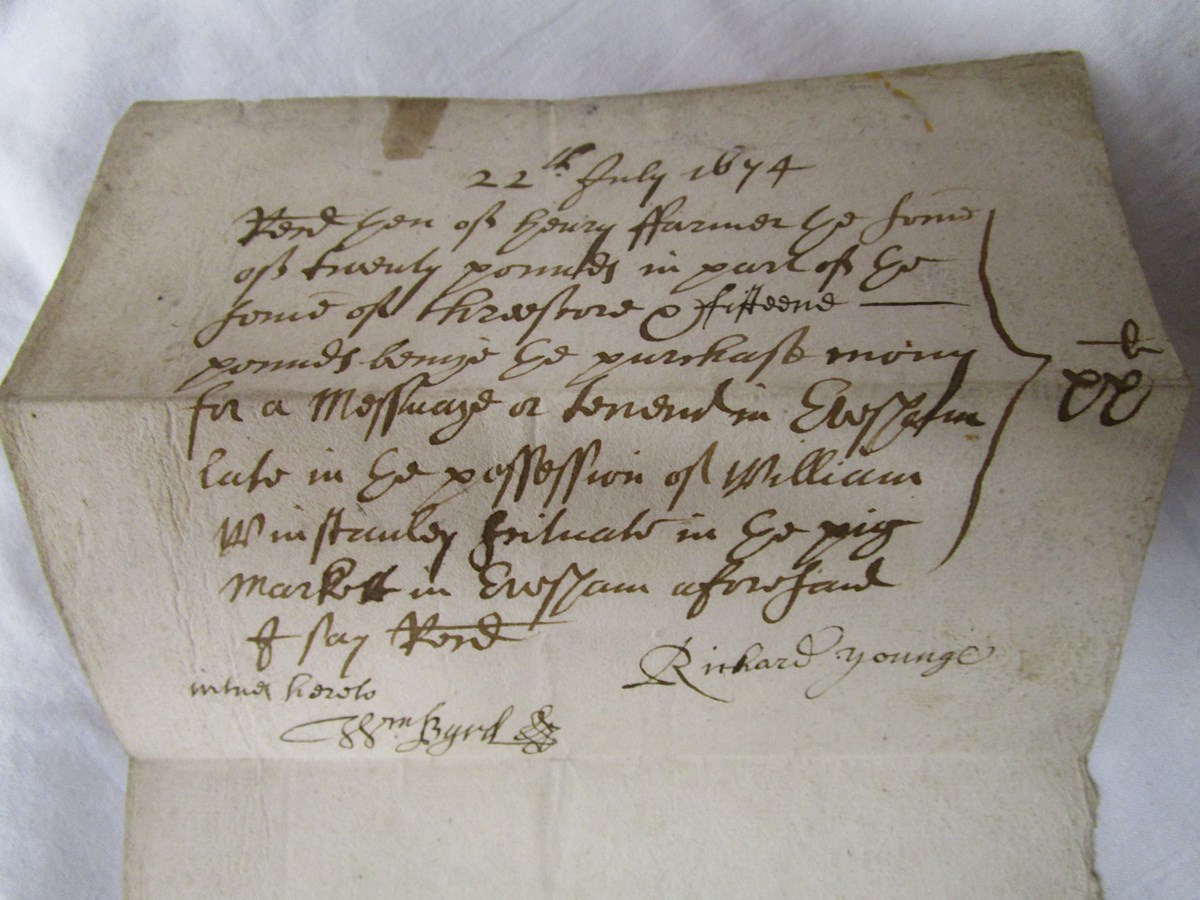 22th July 1674
Recd then of Henry ffarmer the some
of twenty pounds in part of the
some of threescore & fifteene
pounds beinge the purchase mony
for a Messuage or tenemt in Evesham
late in the possession of William
Winstanley scituate in the pig
Markett in Evesham aforesaid
I say Recd
li
xx
Richard Younge
witnes hereto
Wm Byrd